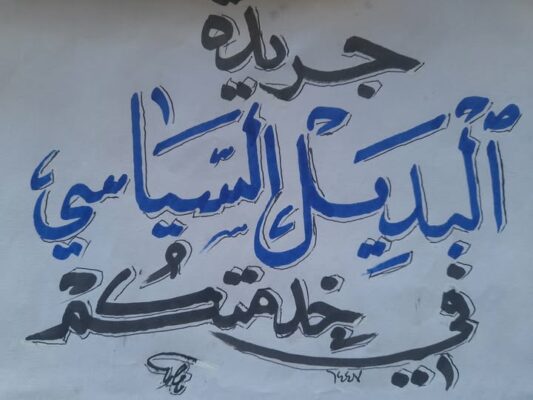 جريدة
اَلْبَدِيلْ السِّيَاسي
في خدمتكُمْ
١٤٤٧